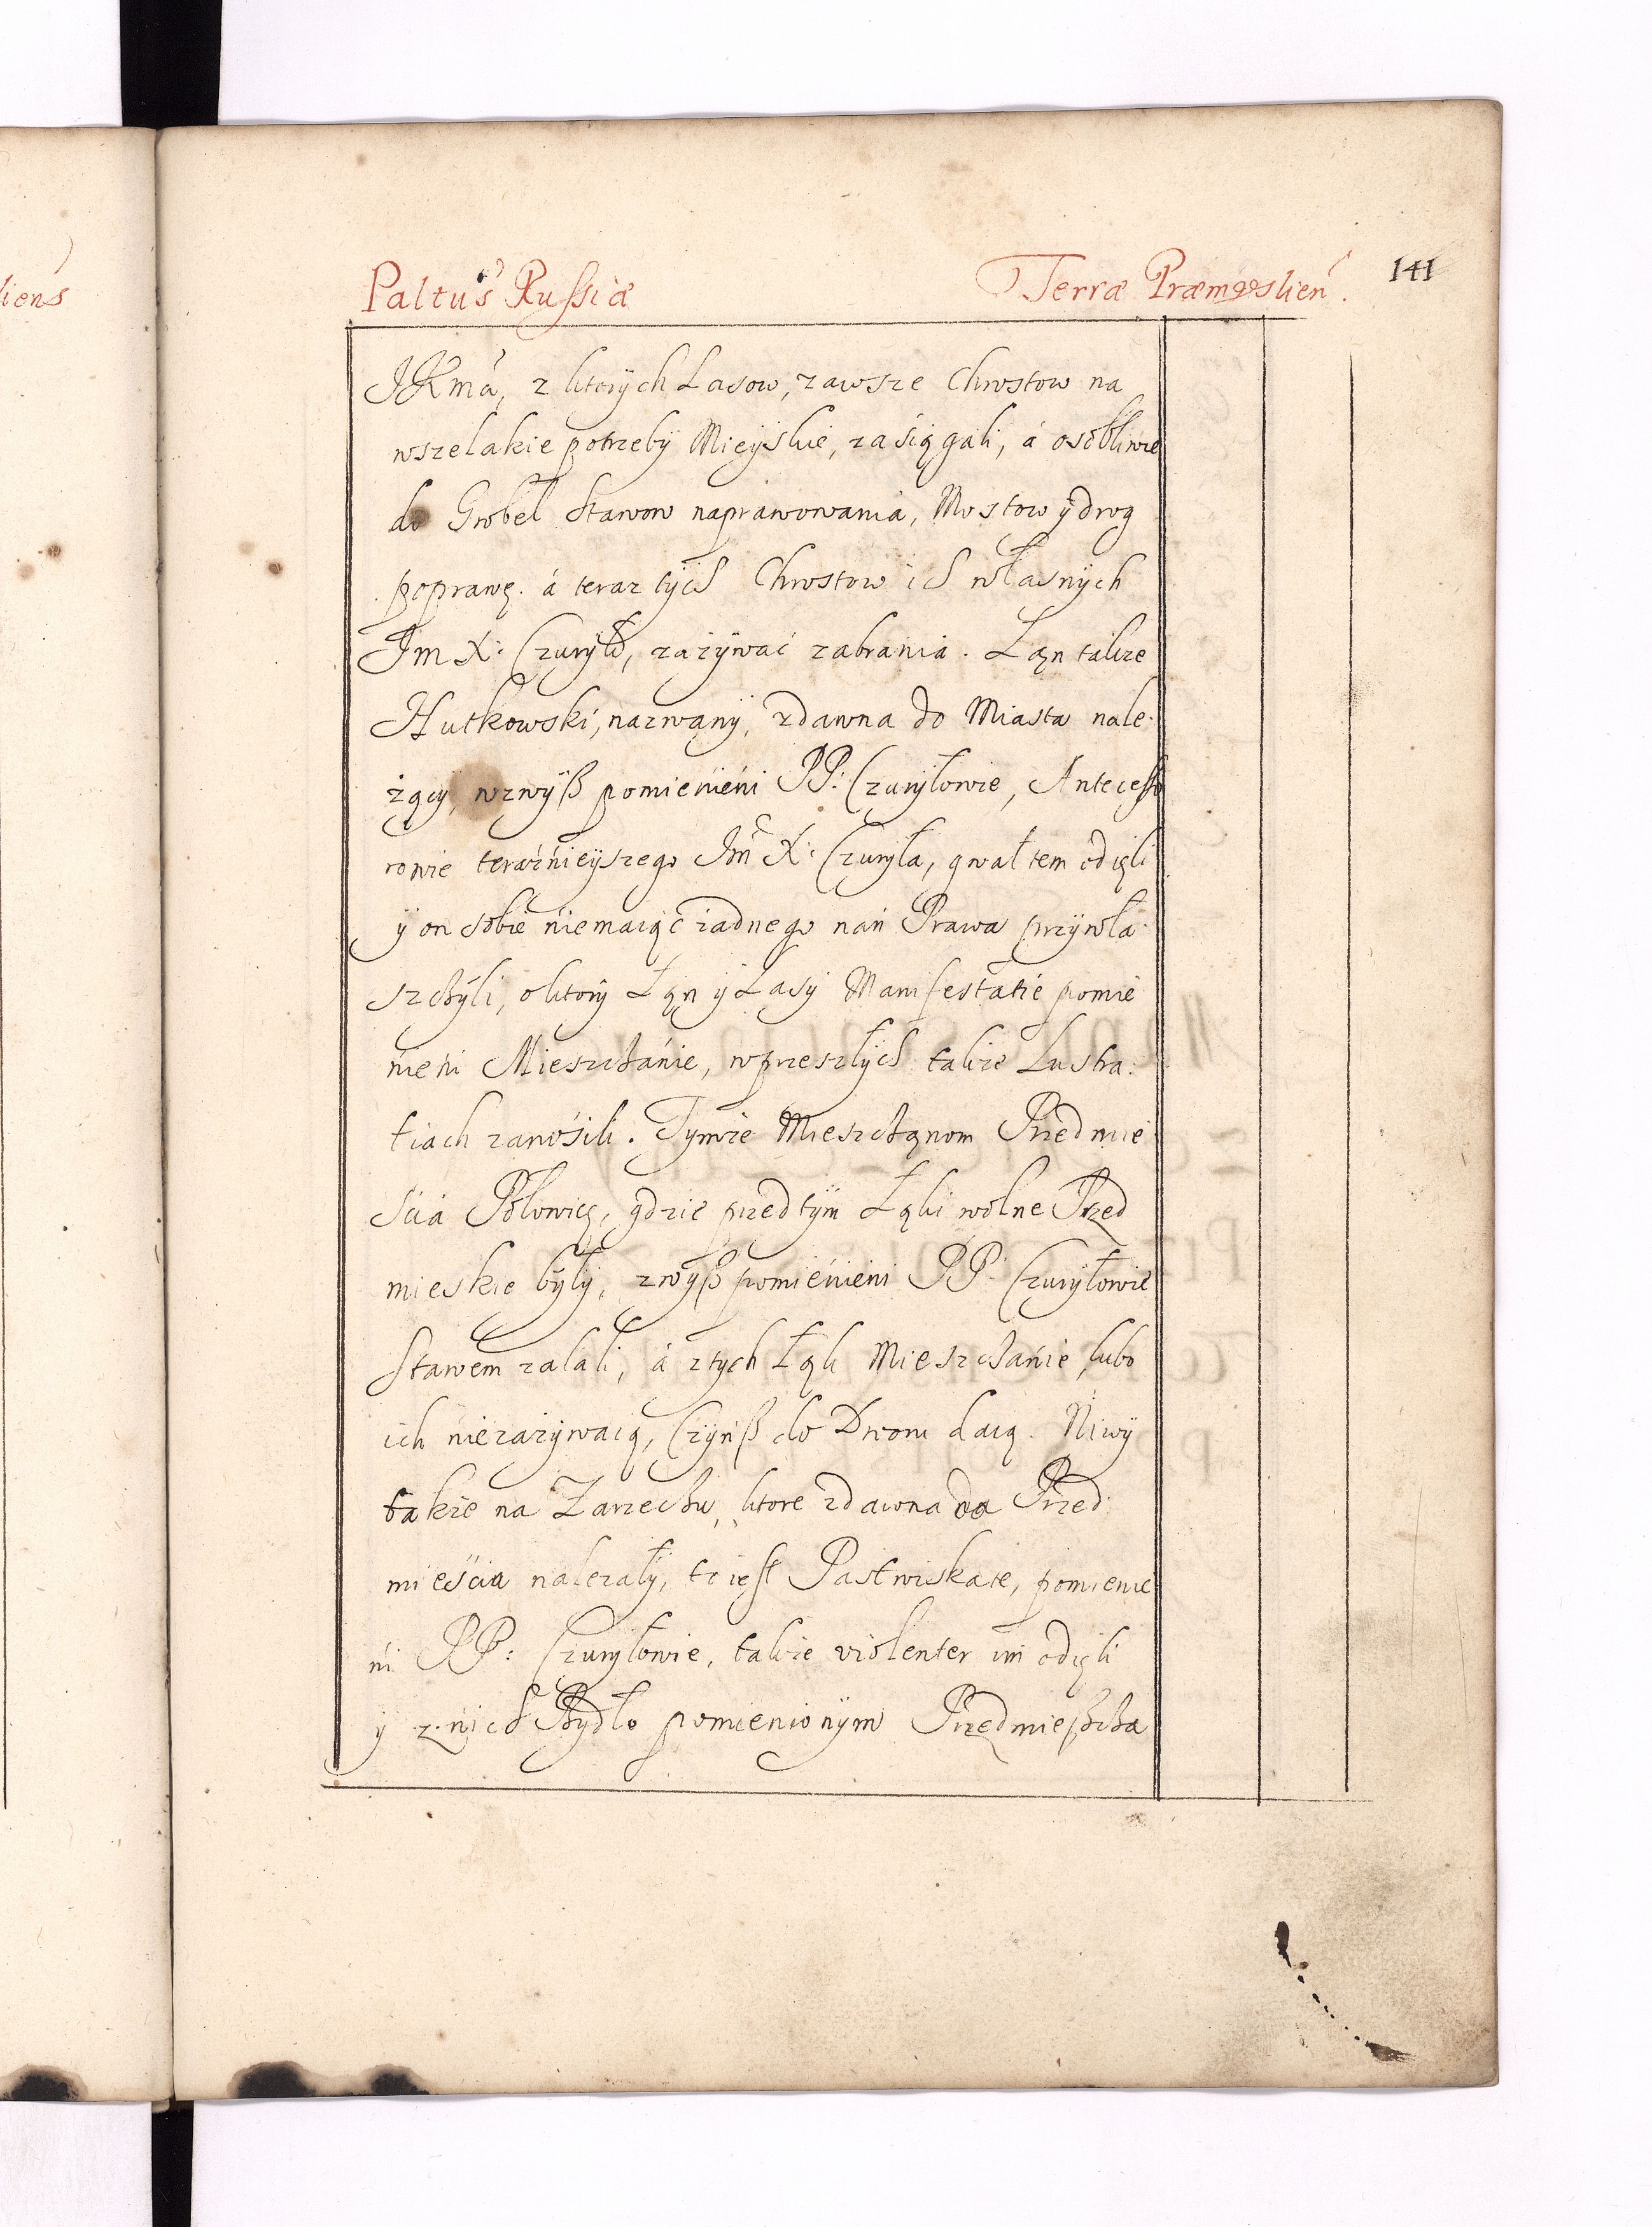 liens
Paltus Russiæ Terræ Præmyslień. 141
JKmći, z ktorych Lasow, zawsze Chrostow na
wszelakie potrzeby Mieyskie, zasiągali, á osobliwie
do Grobel Stawow naprawowania, Mostow y drog
poprawę. á teraz tych Chrostow ich własnych
Jm X: Czuryło, zażywać zabrania. Łan także
Hutkowski, nazwany, zdawna do Miasta nale-
żący, wzwyß pomienieni PP: Czuryłowie, Antecesso
rowie teraźnieyszego Jm X: Czuryła, gwałtem odięli
y on sobie niemaiąc żadnego nań Prawa przywła-
szczyli, o ktory Łan y Lasy Manifestatie pomie
nieni Mieszczanie, w przeszłych także Lustra-
tiach zanosili. Tymże Mieszczanom Przedmie
ścia Połowicę, gdzie przedtym Łąki wolne Przed
mieskie były, zwyß pomienieni PP: Czuryłowie
Stawem zalali, á z tych Łąk Mieszczanie, lubo
ich niezażywaią, Czynß do Dworu daią. Niwy
także na Zarzeczu, ktore zdawna do Przed-
mieścia należały, to iest Pastwiskate, pomienie
ni PP: Czuryłowie, także violenter im odięli
y z nich Bydło pomienionym Przedmießcza